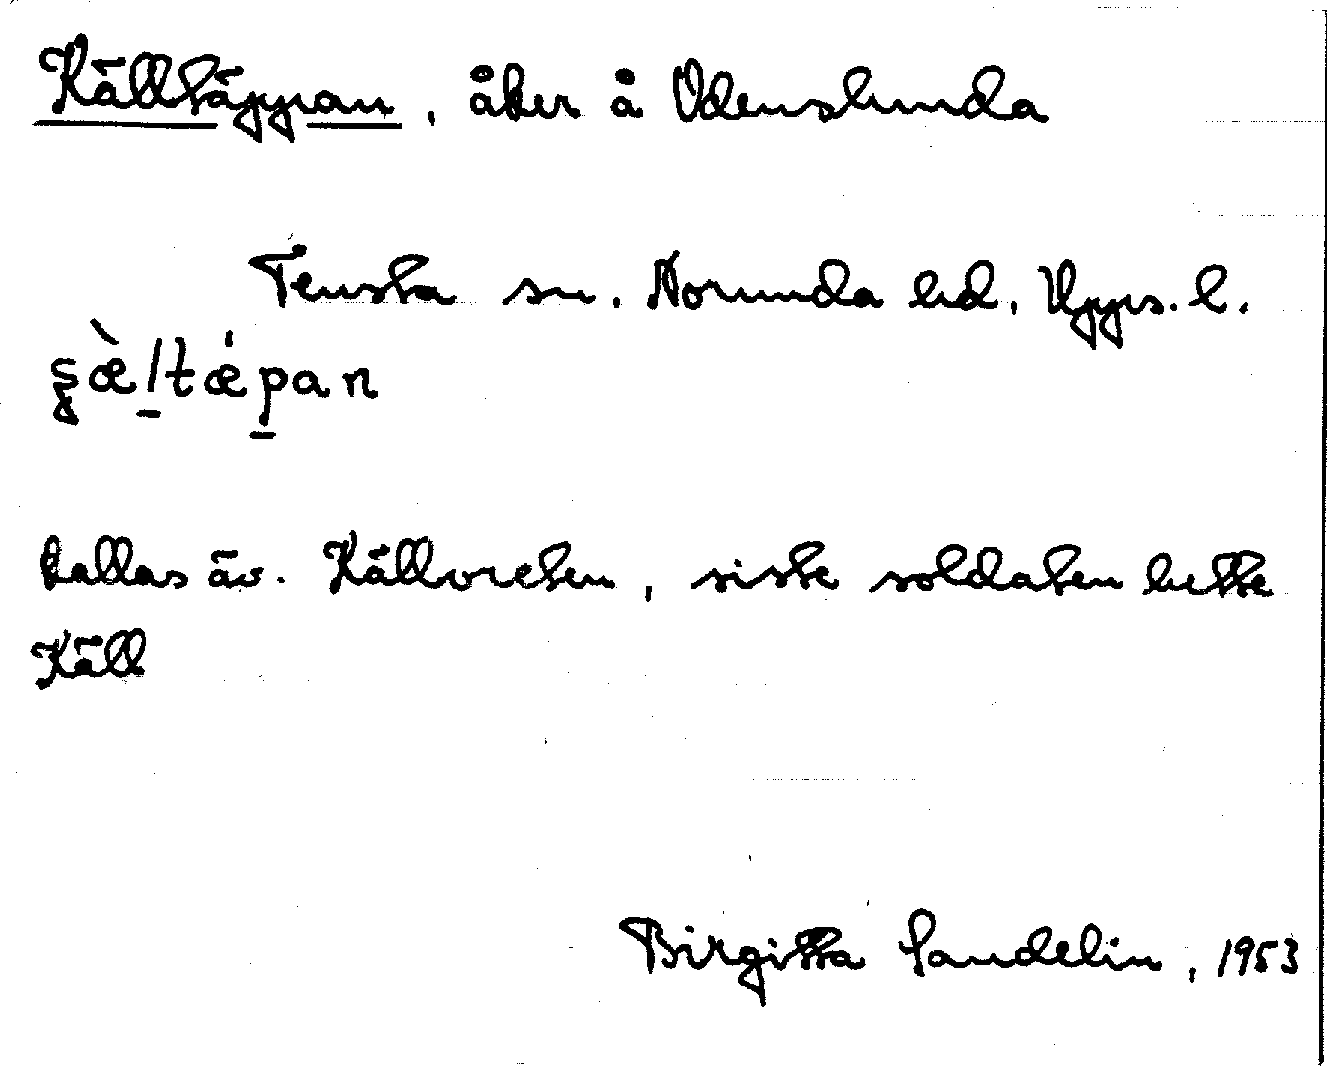 Källtäppan, åker å Odenslunda
Tensta sn. Norunda hd. Upps. l.
ȿæ̀l̠tǽp̠an
kallas äv. Källvreten, siste soldaten hette
Käll
Birgitta Sandelin, 1953